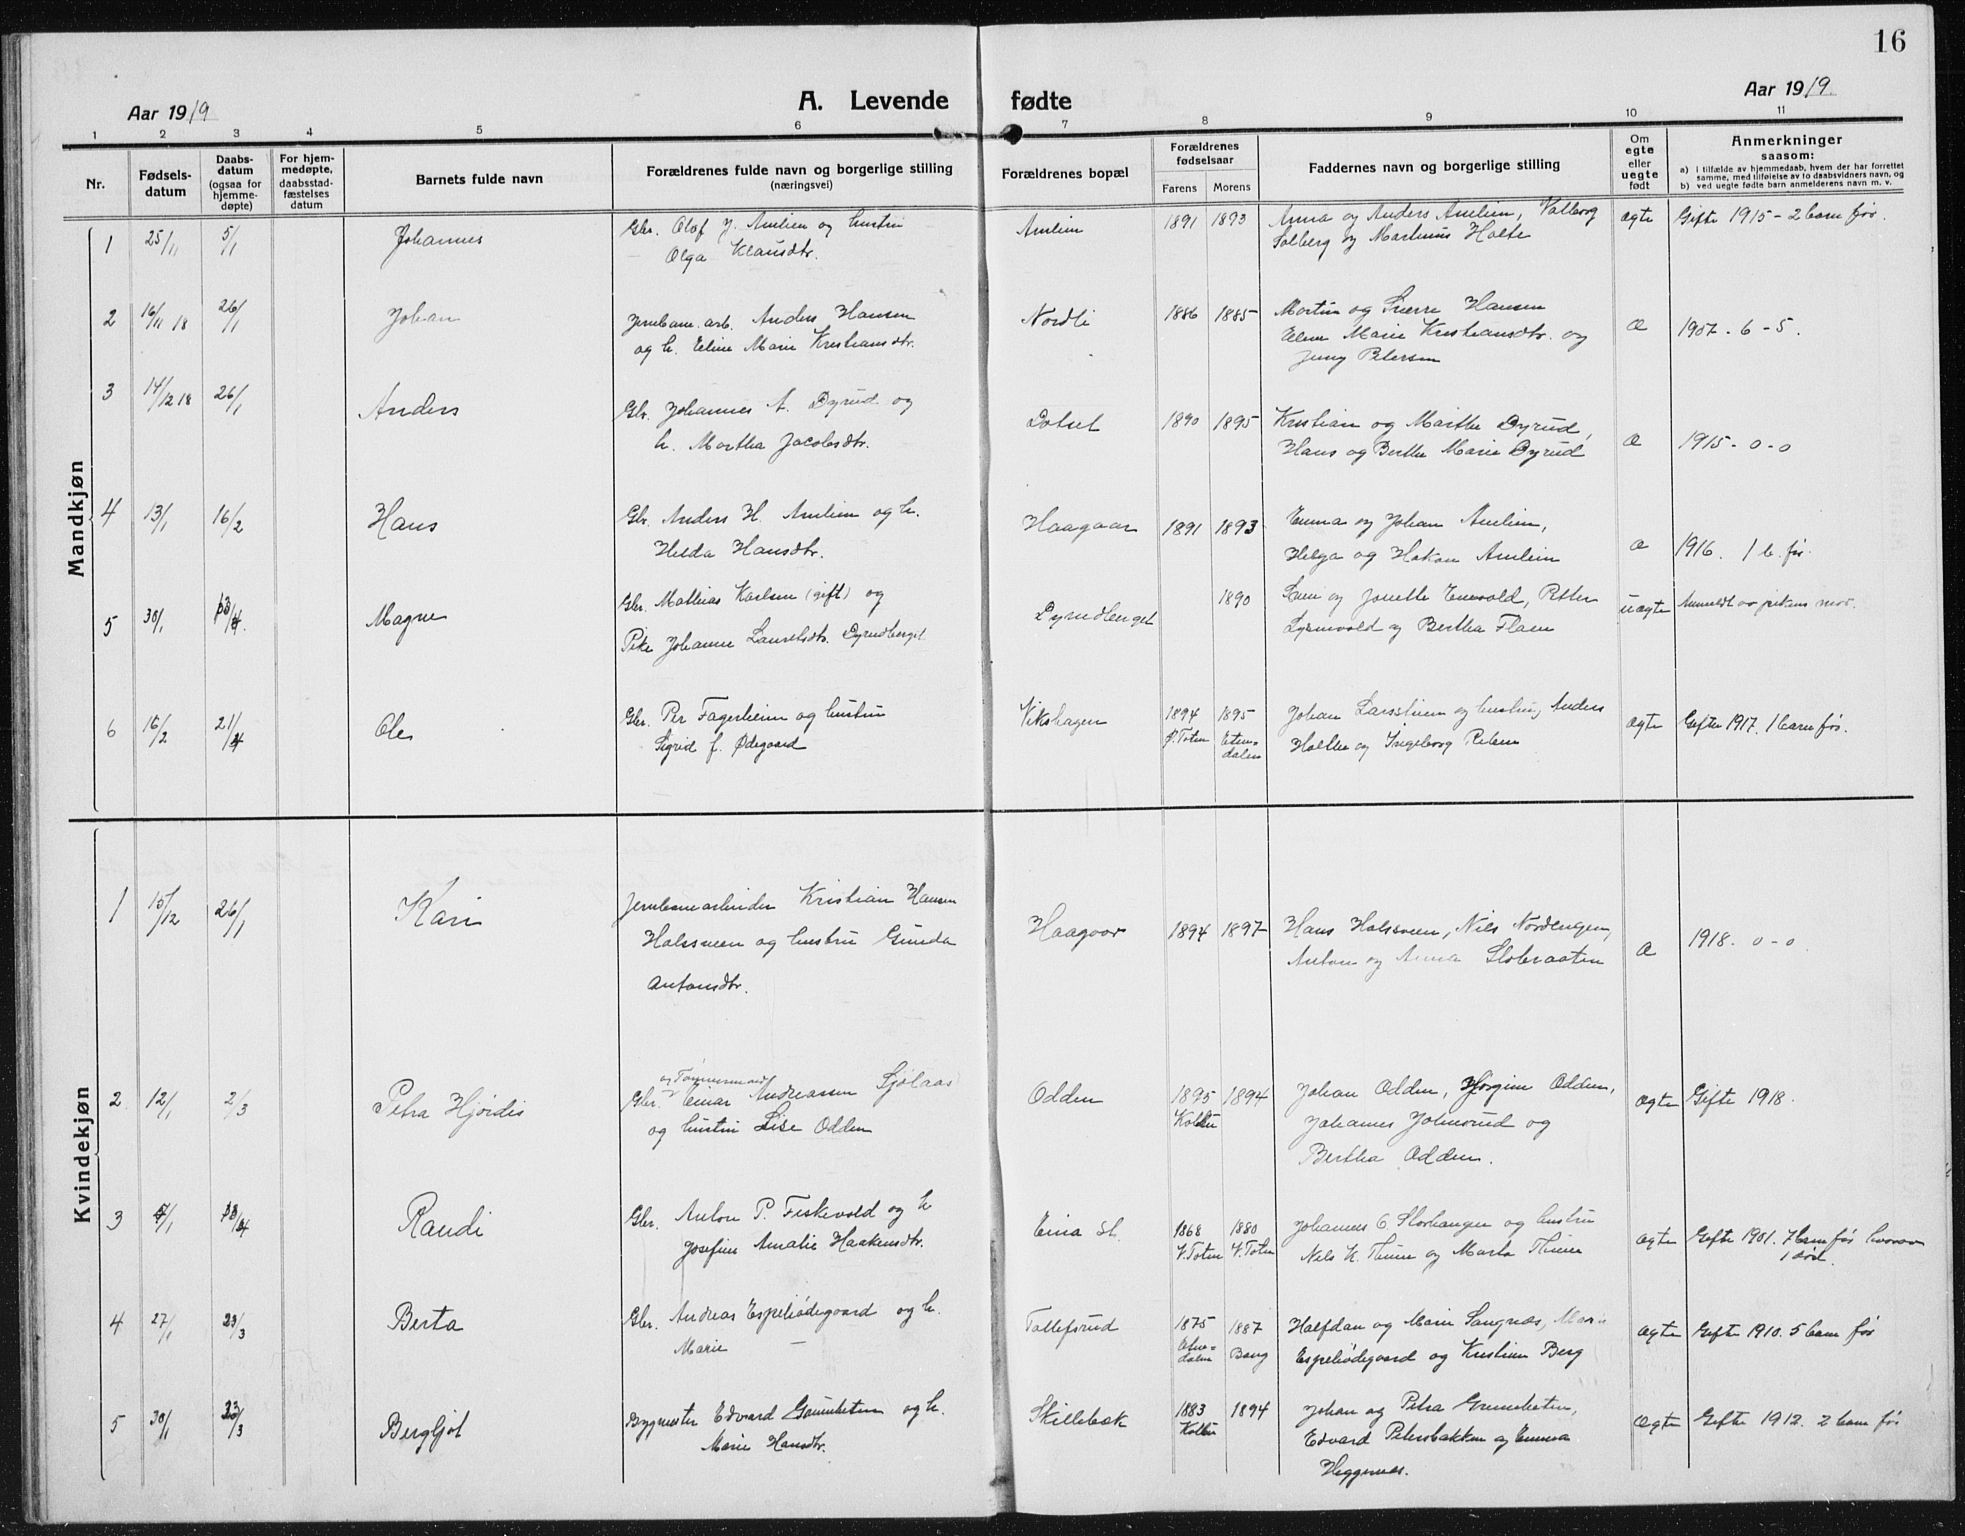 16
Aar 1919
A. Levende fødte
Aar 1919
1 2 3 4 5 6 7 8 9 10 11
Nr.
Fødsels-
datum
Daabs-
datum
(ogsaa for
hjemme-
døpte)
For hjem-
medøpte,
daabsstad-
fæstelses
datum
Barnets fulde navn
Forældrenes fulde navn og borgerlige stilling
(næringsvei)
Forældrenes bopæl
Forældrenes
fødselsaar
Farens Morens
Faddernes navn og borgerlige stilling
Om
egte
eller
uegte
født
Anmerkninger
saasom:
a) i tilfælde av hjemmedaab, hvem der har forrettet
samme, med tilføielse av to daabsvidners navn, og
b) ved uegte fødte barn anmelderens navn m. v.
Mandkjøn
1 25/11 5/1 Johannes Gbr. Olaf J. Amlien og hustru Amlien 1891 1893 Anna og Anders Amlien, Valborg ægte Gifte 1915 - 2 barn før.
Olga Klausdtr. Solberg og Martinius Holte
2 16/11 18 26/1 Johan Jernbane.arb. Anders Hansen Nordli 1886 1885 Martin og Sverre Hansen æ 1907 - 6 - 5.
og h. Eline Marie Kristiansdtr. Marie Kristiansdtr. og
Jenny Petersen
3 14/12 18 26/1 Anders Gbr. Johannes A. Dyrud og 1890 1895 Kristian og Marthe Dyrud, æ 1915 - 0 - 0
h. Martha Jacobsdtr. Hans og Berthe Marie Dyrud
4 13/1 16/2 Hans Gbr. Anders H. Amlien og h. Haagaar 1891 1893 Emma og Johan Amlien, æ 1916. 1 b. før.
Helda Hansdtr. Helga og Hakon Amlien
5 30/1 Magne Gbr. Mathias Karlsen (gift) og Dyrudberget 1890 Petter uægte Anmeldt av pikens mor.
Pike Johanne Lauritsdtr. Dyrudberget og Bertha Flaen
6 16/2 21/4 Ole Gbr. Per Fagerheim og hustru Vikshagen 1894 1895 Johan Larsstuen og hustru, Anders ægte Gifte 1917. 1 barn før.
Sigrid f. Ødegaard Ø. Toten Etne-
dalen Holthe og Ingeborg
Kvindekjøn
1 15/12 26/1 Kari Jernbanearbeider Kristian Hansen Haagaar 1894 1897 Hans Halssveen, Nils Nordengen, æ 1918. 0 - 0.
Halssveen og hustru Gunda Anton og Anna Slobraaten
Antonsdtr.
2 12/1 2/3 Petra Hjørdis og Tømmermand
Gbr. Einar Andreassen Sjølaas Odden 1895 1894 Johan Odden, Jørgine Odden, ægte Gifte 1918.
og hustru Lise Odden Kolbu Johannes og
Bertha Odden.
3 Randi Gbr. Anton P. Fiskevold og h Eina st. 1868 1880 Johannes og hustru ægte Gifte 1901. 7 barn før hvorav
Josefine Amalie Haakensdtr. V. Toten V. Toten Nils K. Thune og Marta Thune 1 død.
4 27/1 23/3 Berta Gbr. Andreas Espeliødegaard og h. Tollefsrud 1875 1887 Halfdan og Marie Sangnæs, ægte Gifte 1910. 5 barn før
Marie — Etne-
dalen Bang Espeliødegaard og Kristian Berg
5 30/1 23/3 Bergljot Bygmester Edvard Grimebeten og h. Skillebæk 1883 1894 Johan og Petra Grimebeten, ægte Gifte 1912. 2 barn før
Marie Hansdtr. Kolbu Edvard Petersbakken og Emma
Heggenæs.